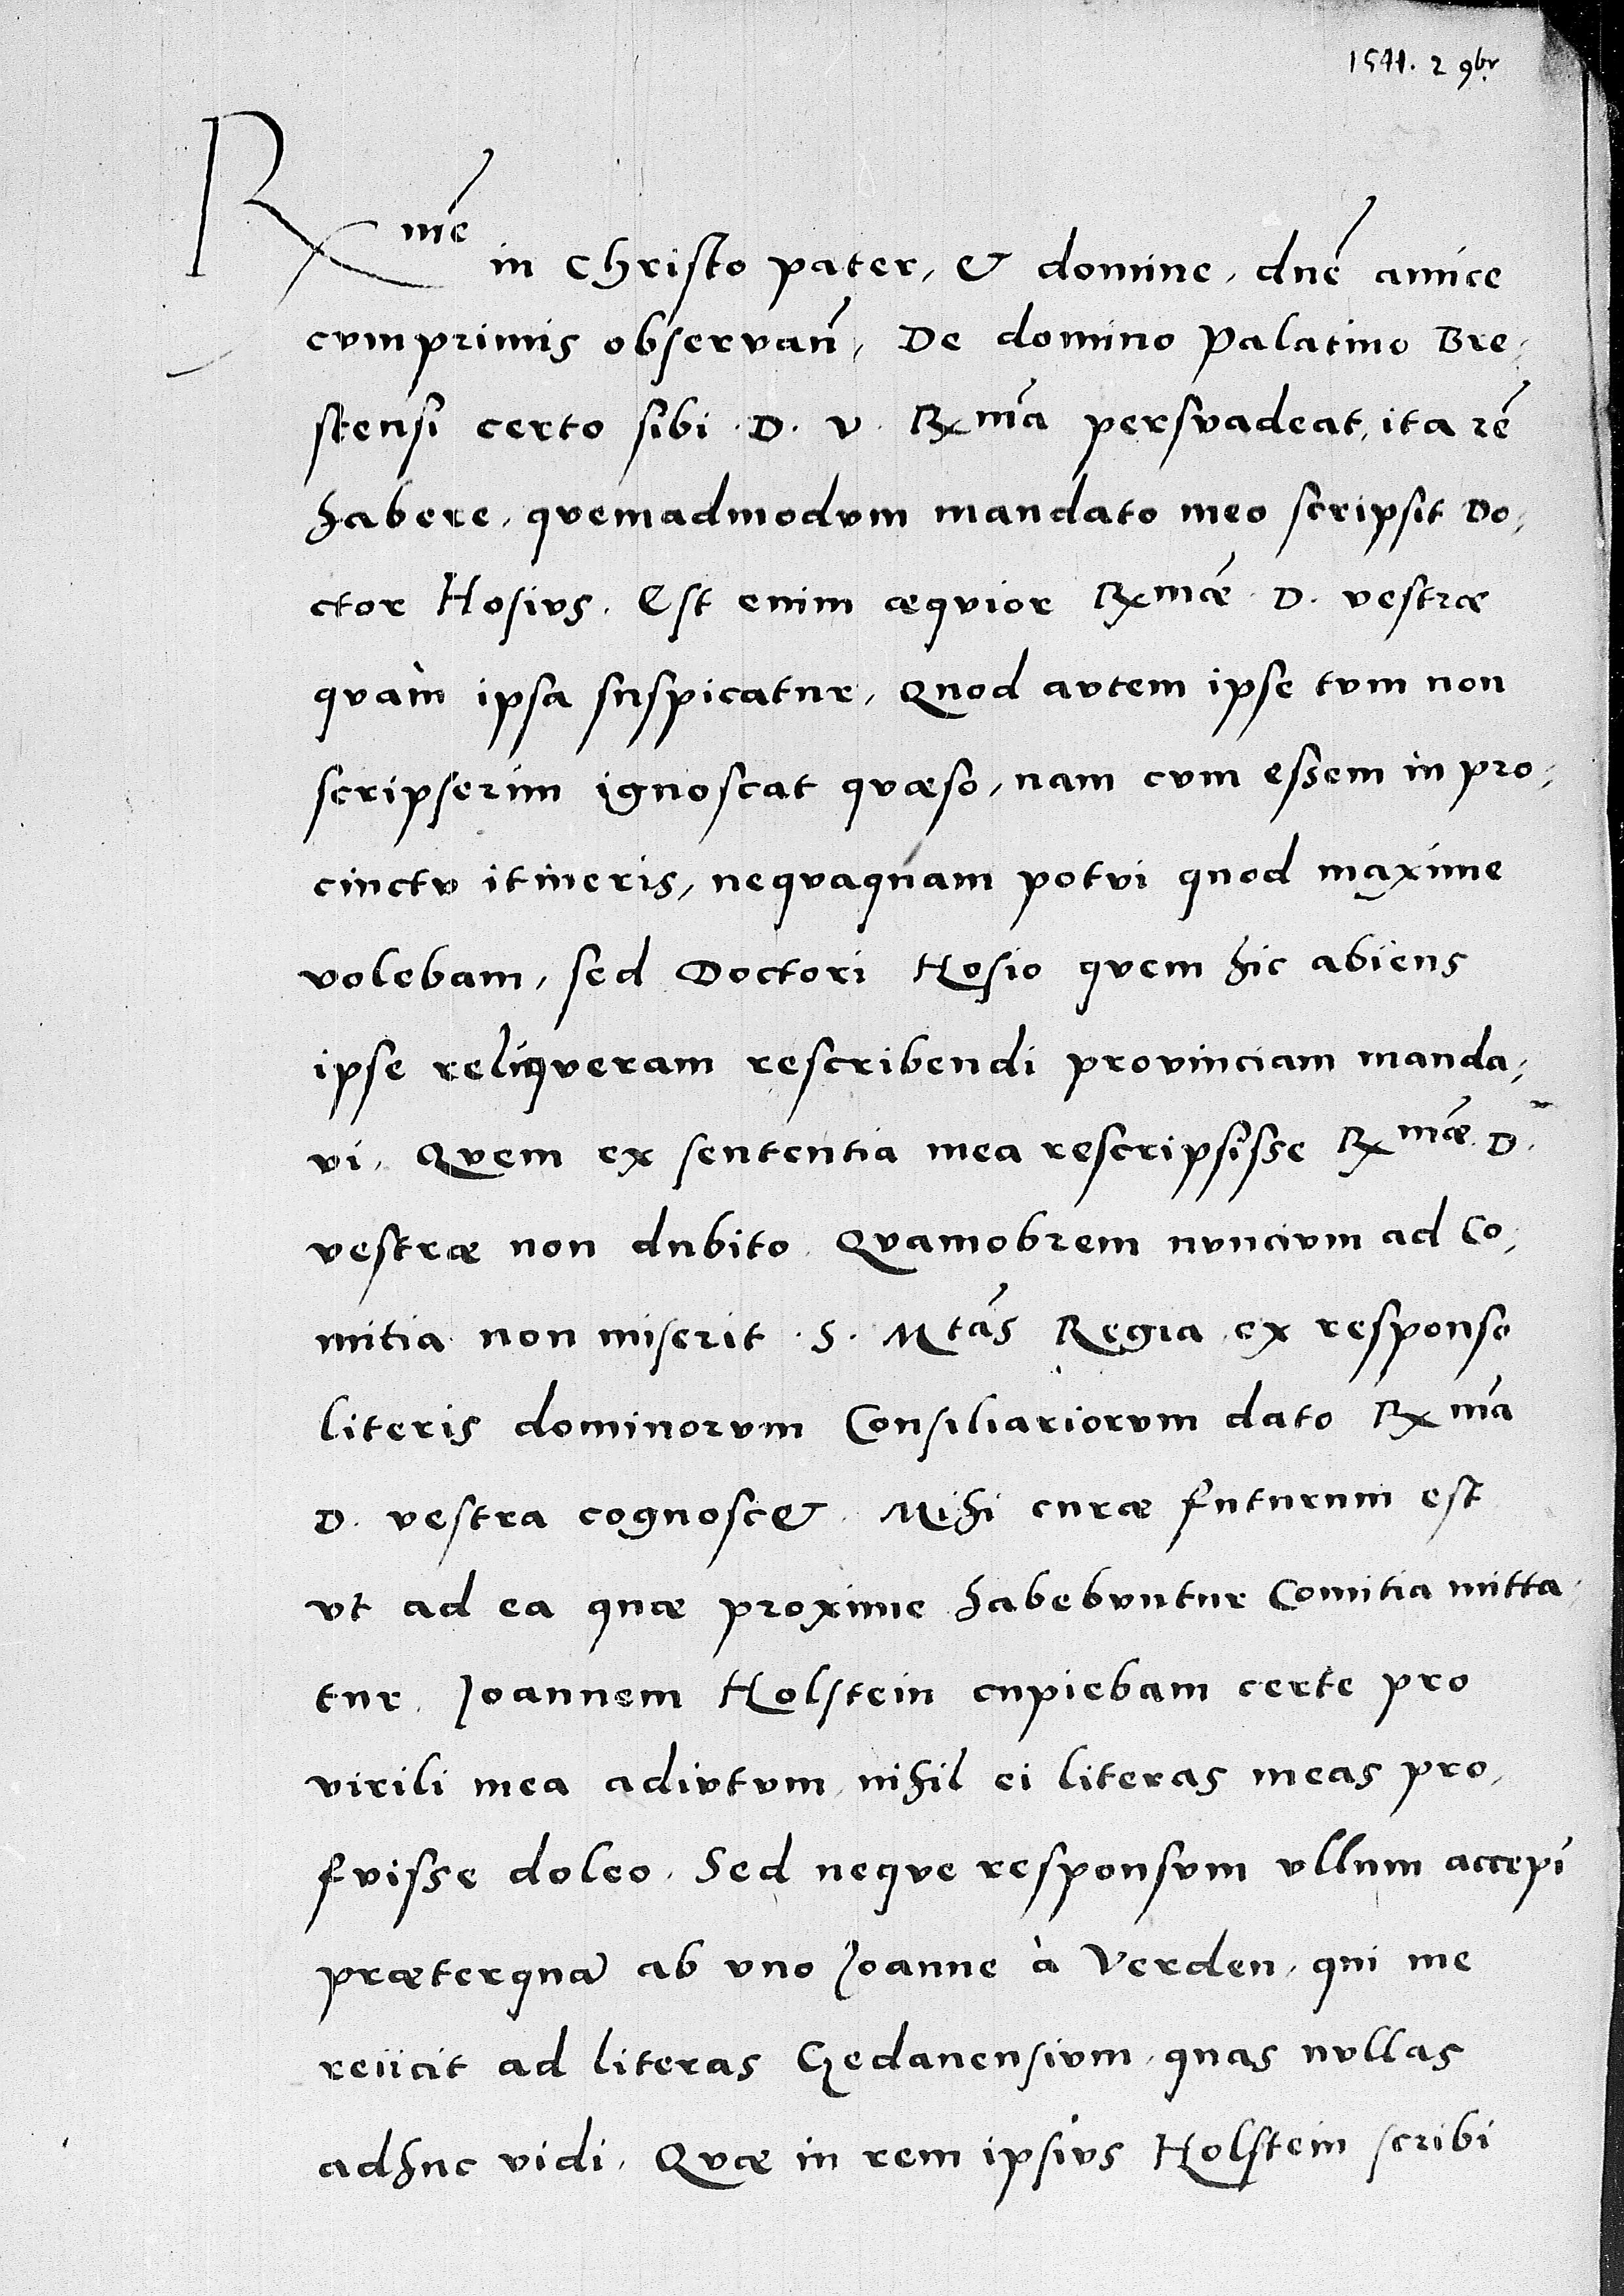 1541. 2 9br
Rme in Christo pater, & domine, dne amice
cumprimis observan, De domino Palatino Bre,
stensi certo sibi D. V. Rma persvadeat, ita re
habere, qvemadmodvm mandato meo scripsit Do,
ctor Hosivs. Est enim æqvior Rmæ D. vestræ
qvàm ipsa suspicatur, Quod avtem ipse tvm non
scripserim ignoscat qvæso, nam cvm essem in pro,
cinctv itineris, neqvaquam potvi quod maxime
volebam, sed Doctori Hosio qvem hic abiens
ipse reliqveram rescribendi provinciam manda,
vi. Qvem ex sententia mea rescripsisse Rmæ D.
vestræ non dubito. Qvamobrem nvncivm ad Co,
mitia non miserit S. Mtas Regia, ex responso
literis dominorvm Consiliariorvm dato Rma
D. vestra cognosc&. Mihi curæ futurum est
vt ad ea quæ proxime habebvntur Comitia mitta,
tur. Joannem Holstein cupiebam certe pro
virili mea adivtvm, nihil ei literas meas pro,
fvisse doleo. Sed neqve responsvm vllum accepi
præterqua ab vno Joanne à Verden, qui me
reiicit ad literas Gedanensivm, quas nvllas
adhuc vidi. Qvæ in rem ipsivs Holstein scribi